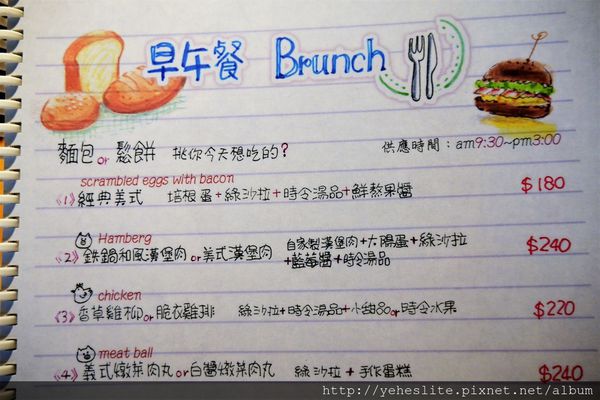 早午餐 Brunch
麵包 or 鬆餅 挑你今天想吃的? 供應時間：am9:30~pm3:00
scrambled eggs with bacon
《1》經典美式 培根蛋+綠沙拉+時令湯品+鮮熬果醬 $180
Hamberg
《2》鉄鍋和風漢堡肉 or 美式漢堡肉 自家製漢堡肉+太陽蛋+綠沙拉 $240
+藍莓醬+時令湯品
chicken
《3》香草雞柳 or 脆衣雞排 綠沙拉+時令湯品+小甜品 or 時令水果 $220
meat ball
《4》義式燉菜肉丸 or 白醬燉菜肉丸 綠沙拉 + 手作蛋糕 $240
http://yeheslite.pixnet.net/album